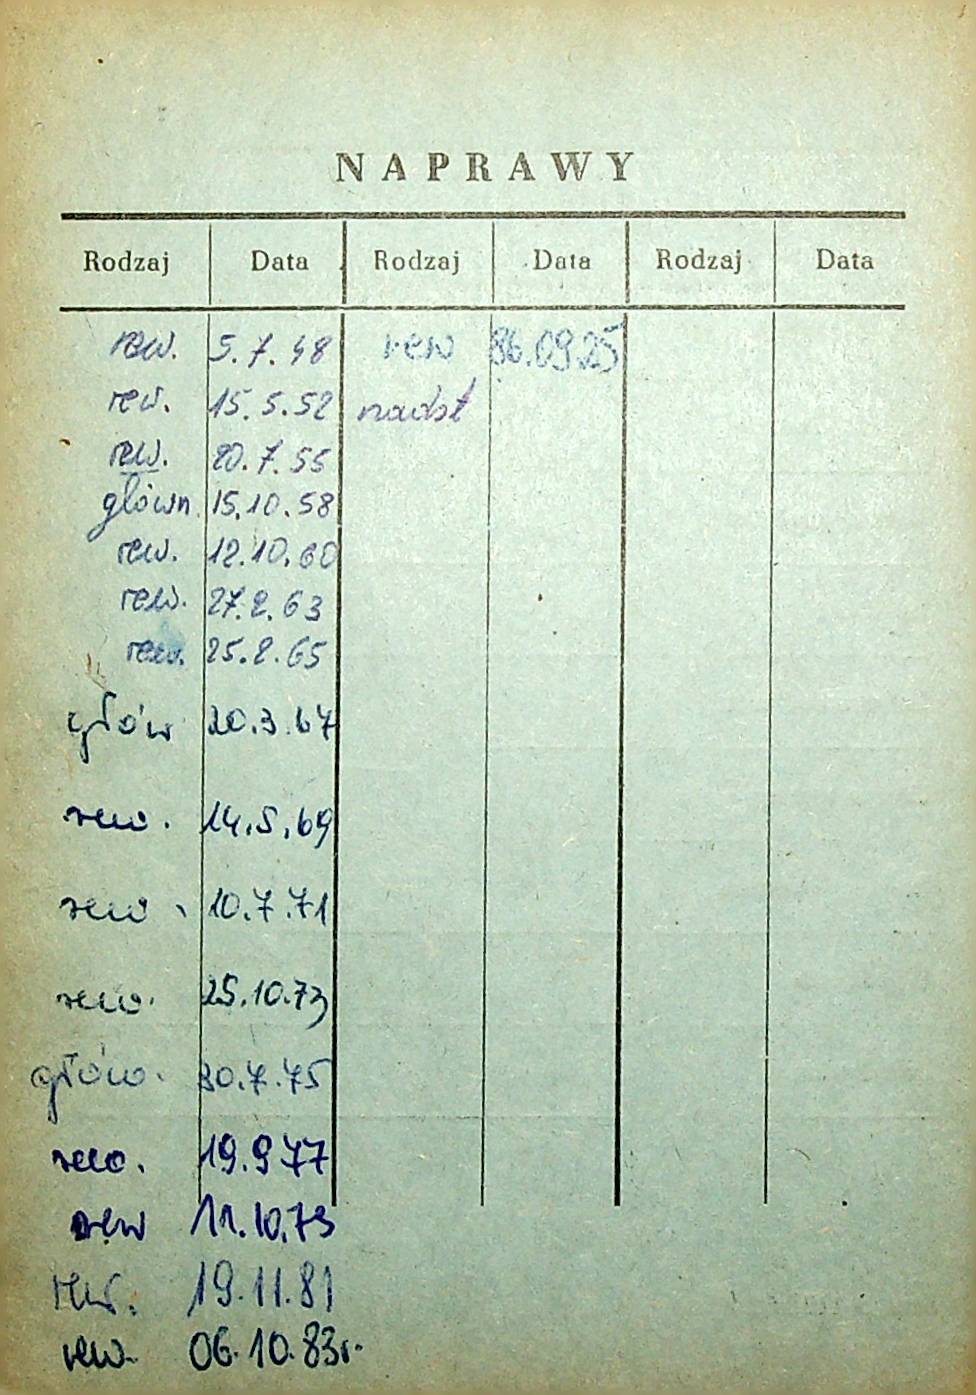 NAPRAWY
Rodzaj Data Rodzaj Data Rodzaj Data
rew. 5.7.48 rew 86.09.25
rew. 15.5.52 nadst
rew. 20.7.55
główn. 15.10.58
rew. 12.10.60
rew. 27.2.63
rew. 25.2.65
głów 20.3.67
rew. 14.5.69
rew. 10.7.71
rew. 25.10.73
głów. 30.7.75
rew. 19.9.77
rew 11.10.79
rew. 19.11.81
rew. 06.10.83r.